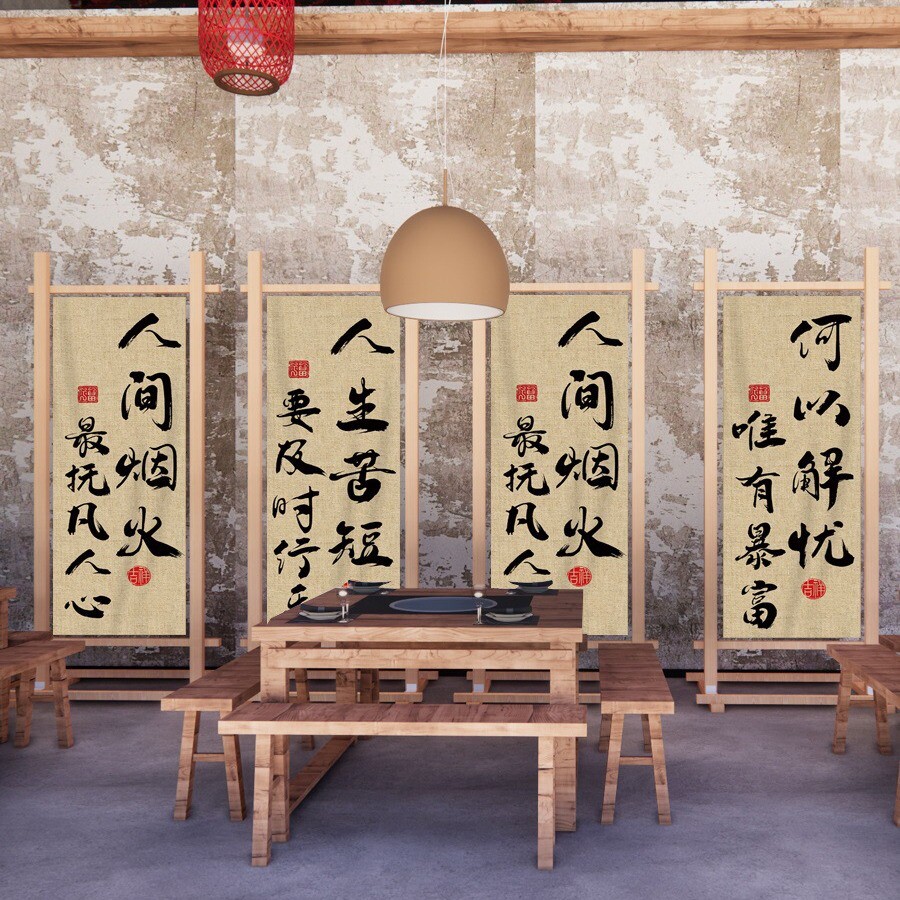 人间烟火
最抚凡人心
吉祥
人生苦短
要及时行
人间烟火
最抚凡人
吉祥
何以解忧
唯有暴富
吉祥